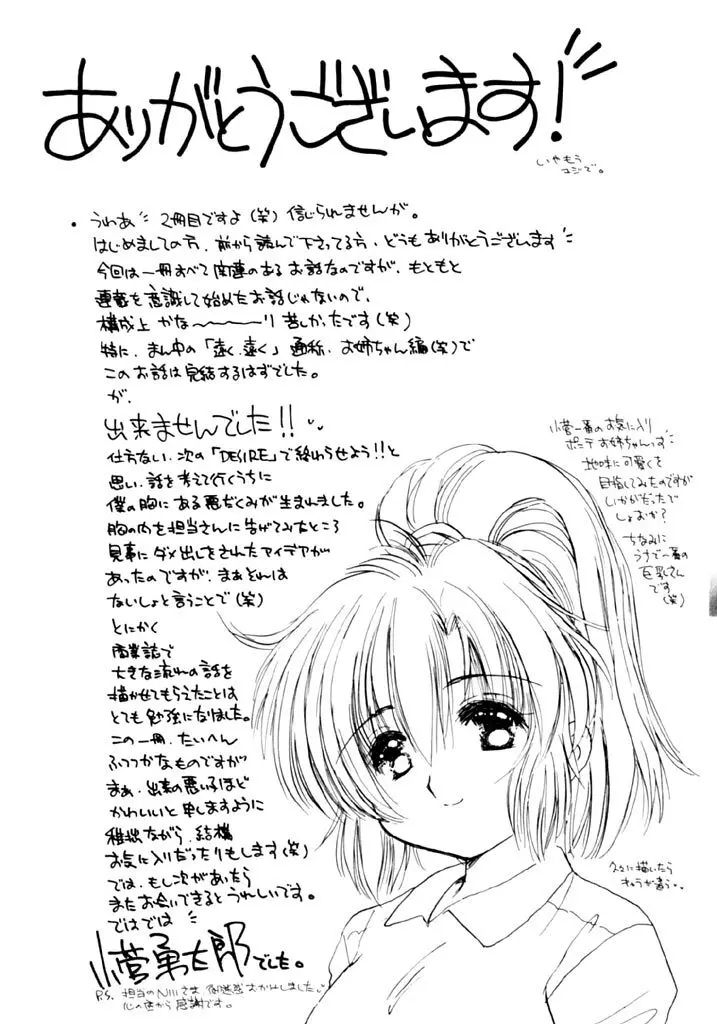 ありがとうございます!
いやもう
マジで。
・うわあ 2冊目ですよ(笑)信じられませんが。
はじめましての方、前から読んで下さってる方、どうもありがとうございます
今回は一冊すべて関連のあるお話なのですが、もともと
連番を意識して始めたお話じゃないので、
構成上 かな〜〜〜〜り苦しかったです(笑)
特に、まん中の「遠く、遠く」通称、お姉ちゃん編(笑)で
このお話は完結するはずでした。
が、
出来ませんでした!!
仕方ない、次の「DESIRE」で終わらせよう!!と
思い、話を考えて行くうちに
僕の胸にある悪だくみが生まれました。
胸の内を担当さんに告げてみたところ
見事にダメ出しをされたアイデアが
あったのですが、まぁそれは
ないしょと言うことで(笑)
とにかく
商業誌で
大きな流れの話を
描かせてもらえたことは
とても勉強になりました。
この一冊、たいへん
ふつつかなものですが
まぁ、出来の悪い子ほど
かわいいと申しますように
稚拙ながら、結構
お気に入りだったりもします(笑)
では、もし次があったら
またお会いできるとうれしいです。
ではでは
小菅勇太郎でした。
P.S. 担当のNIIIさま、御迷惑おかけしました。
心の底から感謝です。
小菅一番のお気に入り
ポニテお姉ちゃんっす
地味に可愛くを
目指してみたのですが
いかがだったで
しょおか?
ちなみに
うちで一番の
巨乳さん
です(笑)
久々に描いたら